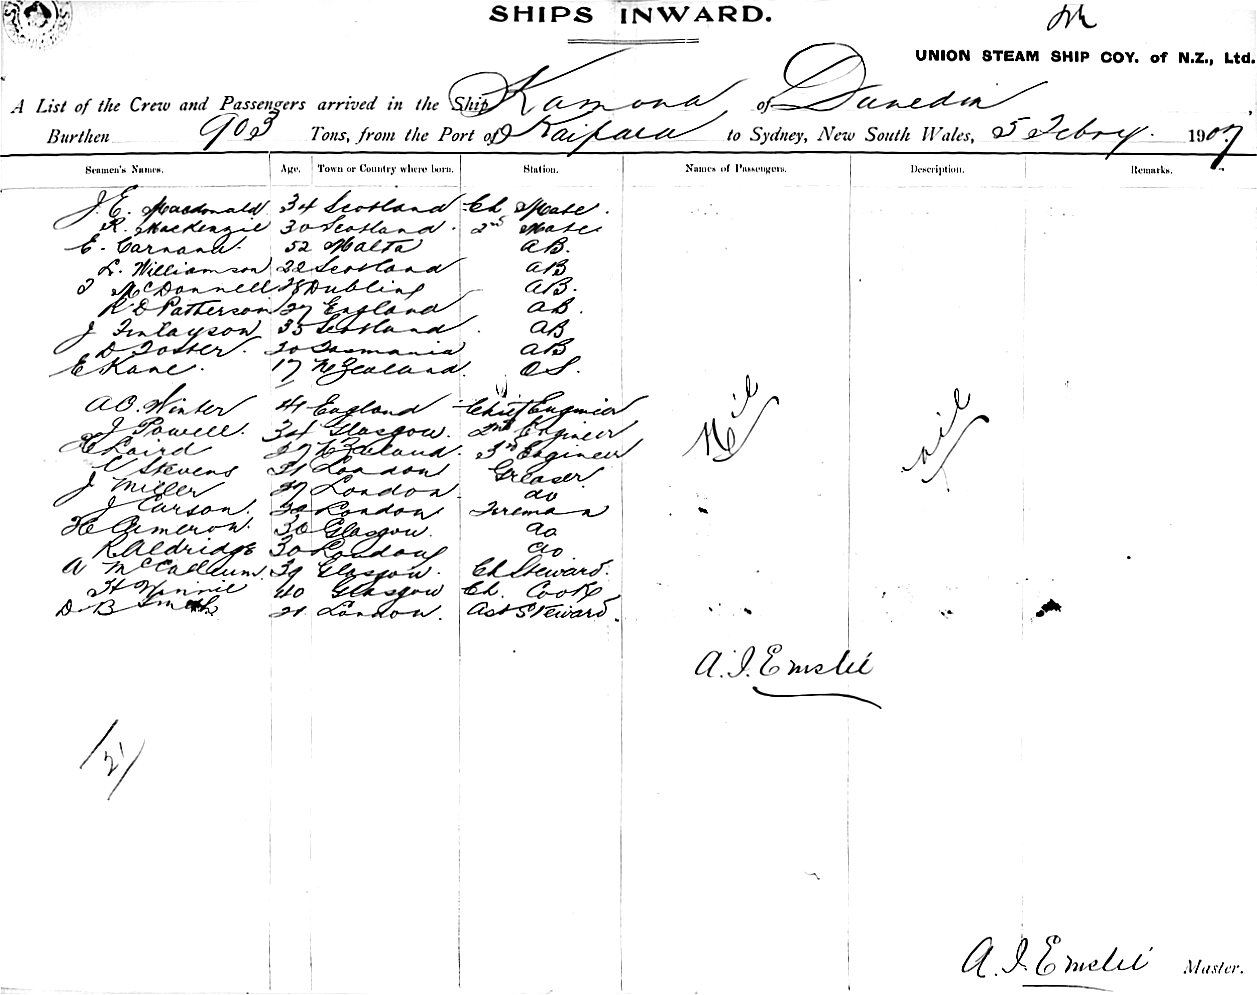 SHIPS INWARD.
UNION STEAM SHIP COY. of N.Z., Ltd.
A List of the Crew and Passengers arrived in the Ship Kamona of Dunedin
Burthen 903 Tons, from the Port of Kaipara to Sydney, New South Wales, 5 Febry. 1907.
Seamen's Names. Age. Town or Country where born. Station. Names of Passengers. Description. Remarks.
J. E. Macdonald 34 Scotland Ch Mate.
R. Mackenzie 30 Scotland. 2nd Mate
E. Carnana. 52 Malta AB.
L. Williamson 22 Scotland AB
T McDonnell 28 Dublin AB.
R D Patterson 27 England AB.
J Finlayson 35 Scotland. AB
D Foster. 20 Tasmania AB
E Kane. 17 N Zealand. OS.
A O. Winter 41 England Chief Engineer
J Powell. 34 Glasgow. 2nd Engineer
H Laird 27 N Zealand. 3rd Engineer
C Stevens 31 London Greaser
J Miller 27 London do
J Carson. London Fireman
H Cameron. 30 Glasgow. do
R Aldridge 30 London do
A McCallum. 39 Glasgow. Ch Steward.
H Winnie 40 Glasgow Ch. Cook
D B Smith 21 London. Ast Steward.
Nil nil
A. I. Emslie
21
A. I. Emslie Master.